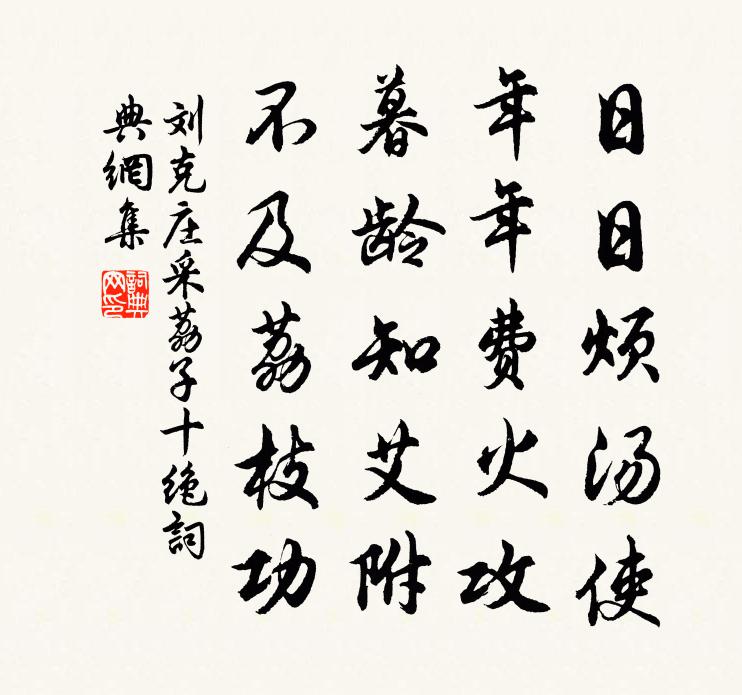 日日烦汤使
年年费火攻
暮龄知艾附
不及荔枝功
刘克庄采荔子十绝詞
典網集
詞典網印